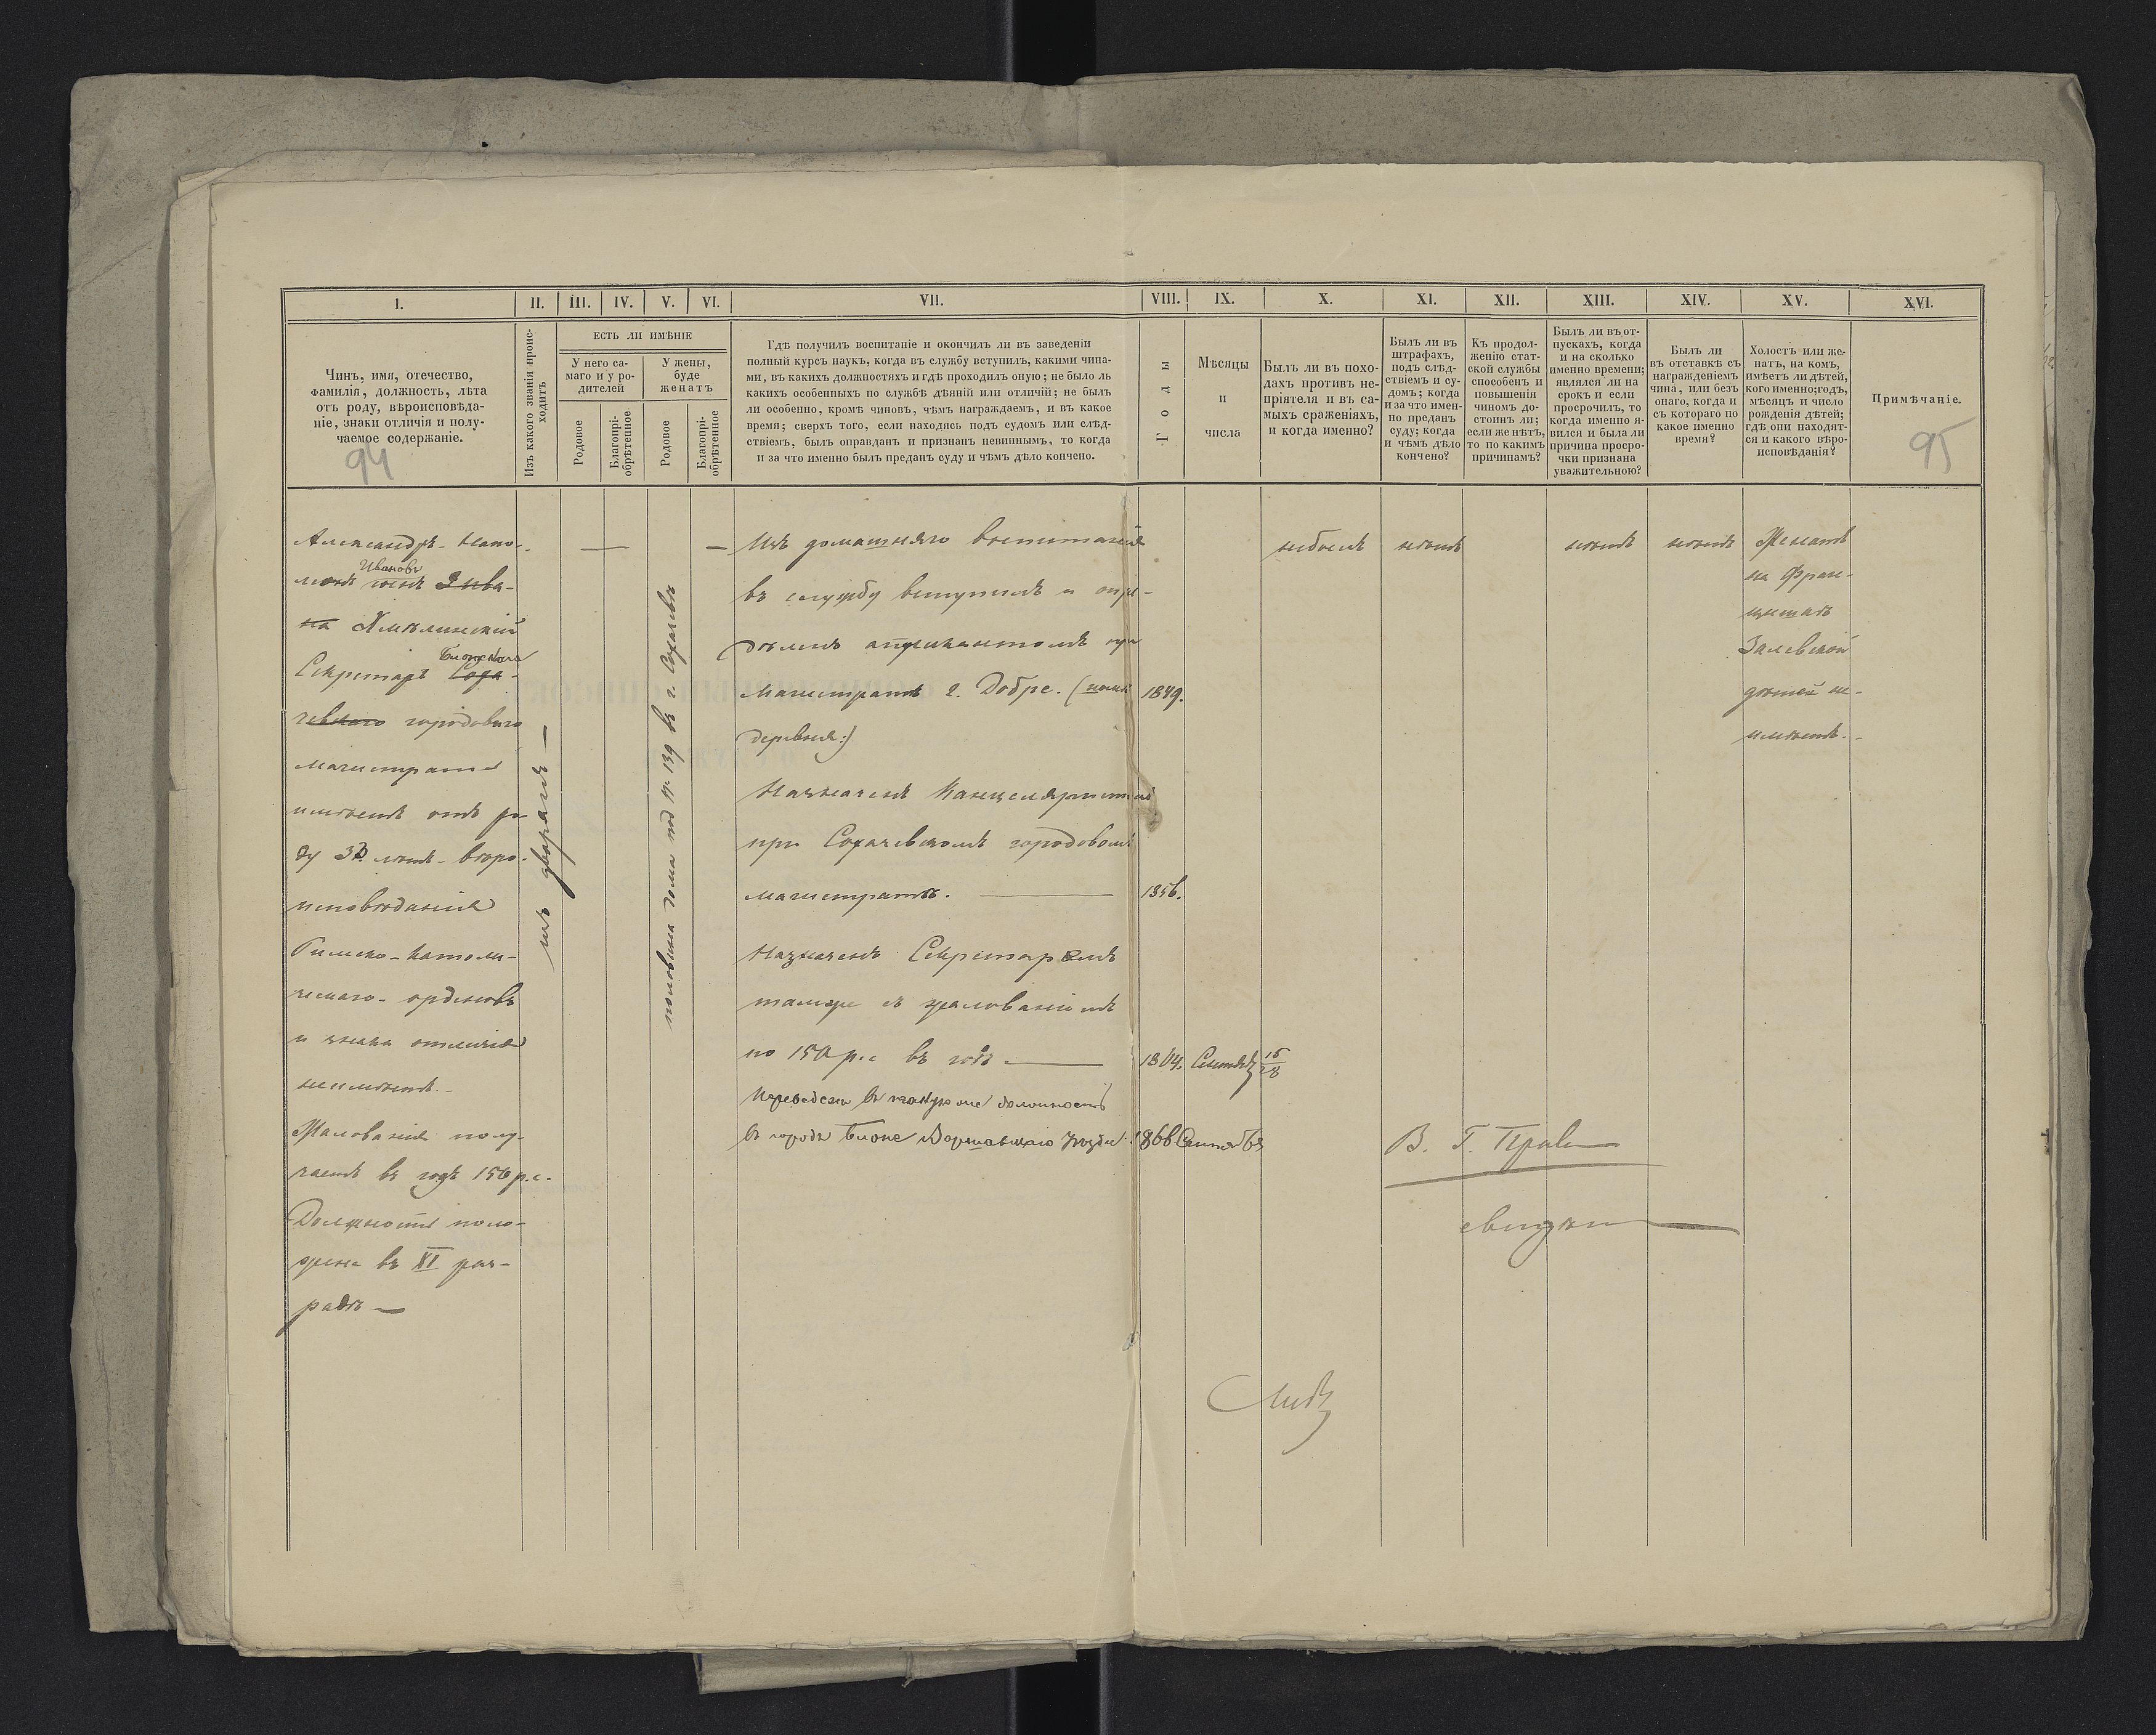 I.
II.
III.
IV.
V.
VI.
VII.
VIII.
IX.
X.
XI.
XII.
XIII.
XIV.
XV.
XVI.
Чинъ, имя, отечество,
фамилія, должность, лѣта
отъ роду, вѣроисповѣда-
ніе, знаки отличія и полу-
чаемое содержаніе.
94
Изъ какого званія проис-
ходитъ
ЕСТЬ ЛИ ИМѢНІЕ
У него са-
маго и у ро-
дителей
У жены,
буде
женатъ
Родовое
Благопрі-
обрѣтенное
Родовое
Благопрі-
обрѣтенное
Гдѣ получилъ воспитаніе и окончилъ ли въ заведеніи
полный курсъ наукъ, когда въ службу вступилъ, какими чина-
ми, въ какихъ должностяхъ и гдѣ проходилъ оную; не было ль
какихъ особенныхъ по службѣ дѣяній или отличій; не былъ
ли особенно, кромѣ чиновъ, чѣмъ награждаемъ, и въ какое
время; сверхъ того, если находясь подъ судомъ или слѣд-
ствіемъ, былъ оправданъ и признанъ невиннымъ, то когда
и за что именно былъ преданъ суду и чѣмъ дѣло кончено.
Годы
Мѣсяцы
и
числа
Былъ ли въ похо-
дахъ противъ не-
пріятеля и въ са-
мыхъ сраженіяхъ,
и когда именно?
Былъ ли въ
штрафахъ,
подъ слѣд-
ствіемъ и су-
домъ; когда
и за что имен-
но преданъ
суду; когда
и чѣмъ дѣло
кончено?
Къ продол-
женію стат-
ской службы
способенъ и
повышенія
чиномъ до-
стоинъ ли;
если же нѣтъ,
то по какимъ
причинамъ?
Былъ ли въ от-
пускахъ, когда
и на сколько
именно времени;
являлся ли на
срокъ и если
просрочилъ, то
когда именно я-
вился и была ли
причина просро-
чки признана
уважительною?
Былъ ли
въ отставкѣ съ
награжденіемъ
чина, или безъ
онаго, когда и
съ котораго по
какое именно
время?
Холостъ или же-
натъ, на комъ,
имѣетъ ли дѣтей,
кого именно; годъ,
мѣсяцъ и число
рожденія дѣтей;
гдѣ они находят-
ся и какого вѣро-
исповѣданія?
Примѣчаніе.
95
Александръ-Напо-
Ивановъ
леонъ
Хмѣлинскій
Блонскаго
Секретарь Соха-
чевскаго городоваго
магистрата
имѣетъ отъ ро-
ду лѣтъ- вѣро-
исповѣданія
Римско-католи-
ческаго- орденовъ
и знака отличія
неимѣетъ.-
Жалованія полу-
чаетъ въ годъ 150 р.с.
Должность поло-
жена въ XI раз-
рядѣ —
изъ дворянъ —
—
половина дома под № 139 въ г. Сохачевѣ
—
Изъ домашняго воспитанія
въ службу вступилъ и опре-
дѣленъ апликантомъ при
Магистратѣ г. Добре. (нынѣ
деревня:)
1849.
Назначенъ Канцеляристомъ
при Сохачевскомъ городовомъ
магистратѣ.
1856.
Назначенъ Секретаремъ
тамже съ жалованіемъ
по 150 р.с въ годъ
1864. Сентябр 16/28
Переведенъ въ таковую же должность
въ городъ Блоне Варшавскаго Уѣзда
1866 Сентября
небылъ
нѣтъ
нѣтъ
нѣтъ
Женатъ
на Фран-
цишкѣ
Залевской
дѣтей не-
имѣетъ.-
В. Г.